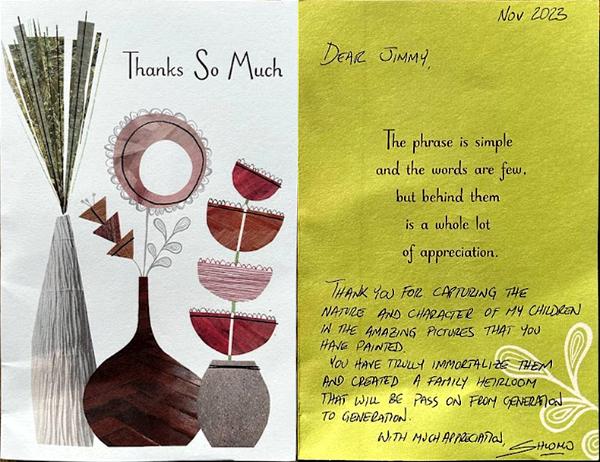 Thanks So Much
Nov 2023
DEAR JIMMY,
The phrase is simple
and the words are few,
but behind them
is a whole lot
of appreciation.
THANK YOU FOR CAPTURING THE
NATURE AND CHARACTER OF MY CHILDREN
IN THE AMAZING PICTURES THAT YOU
HAVE PAINTED.
YOU HAVE TRULY IMMORTALIZE THEM
AND CREATED A FAMILY HEIRLOOM
THAT WILL BE PASS ON FROM GENERATION
TO GENERATION.
WITH MUCH APPRECIATION,
SHLOMO